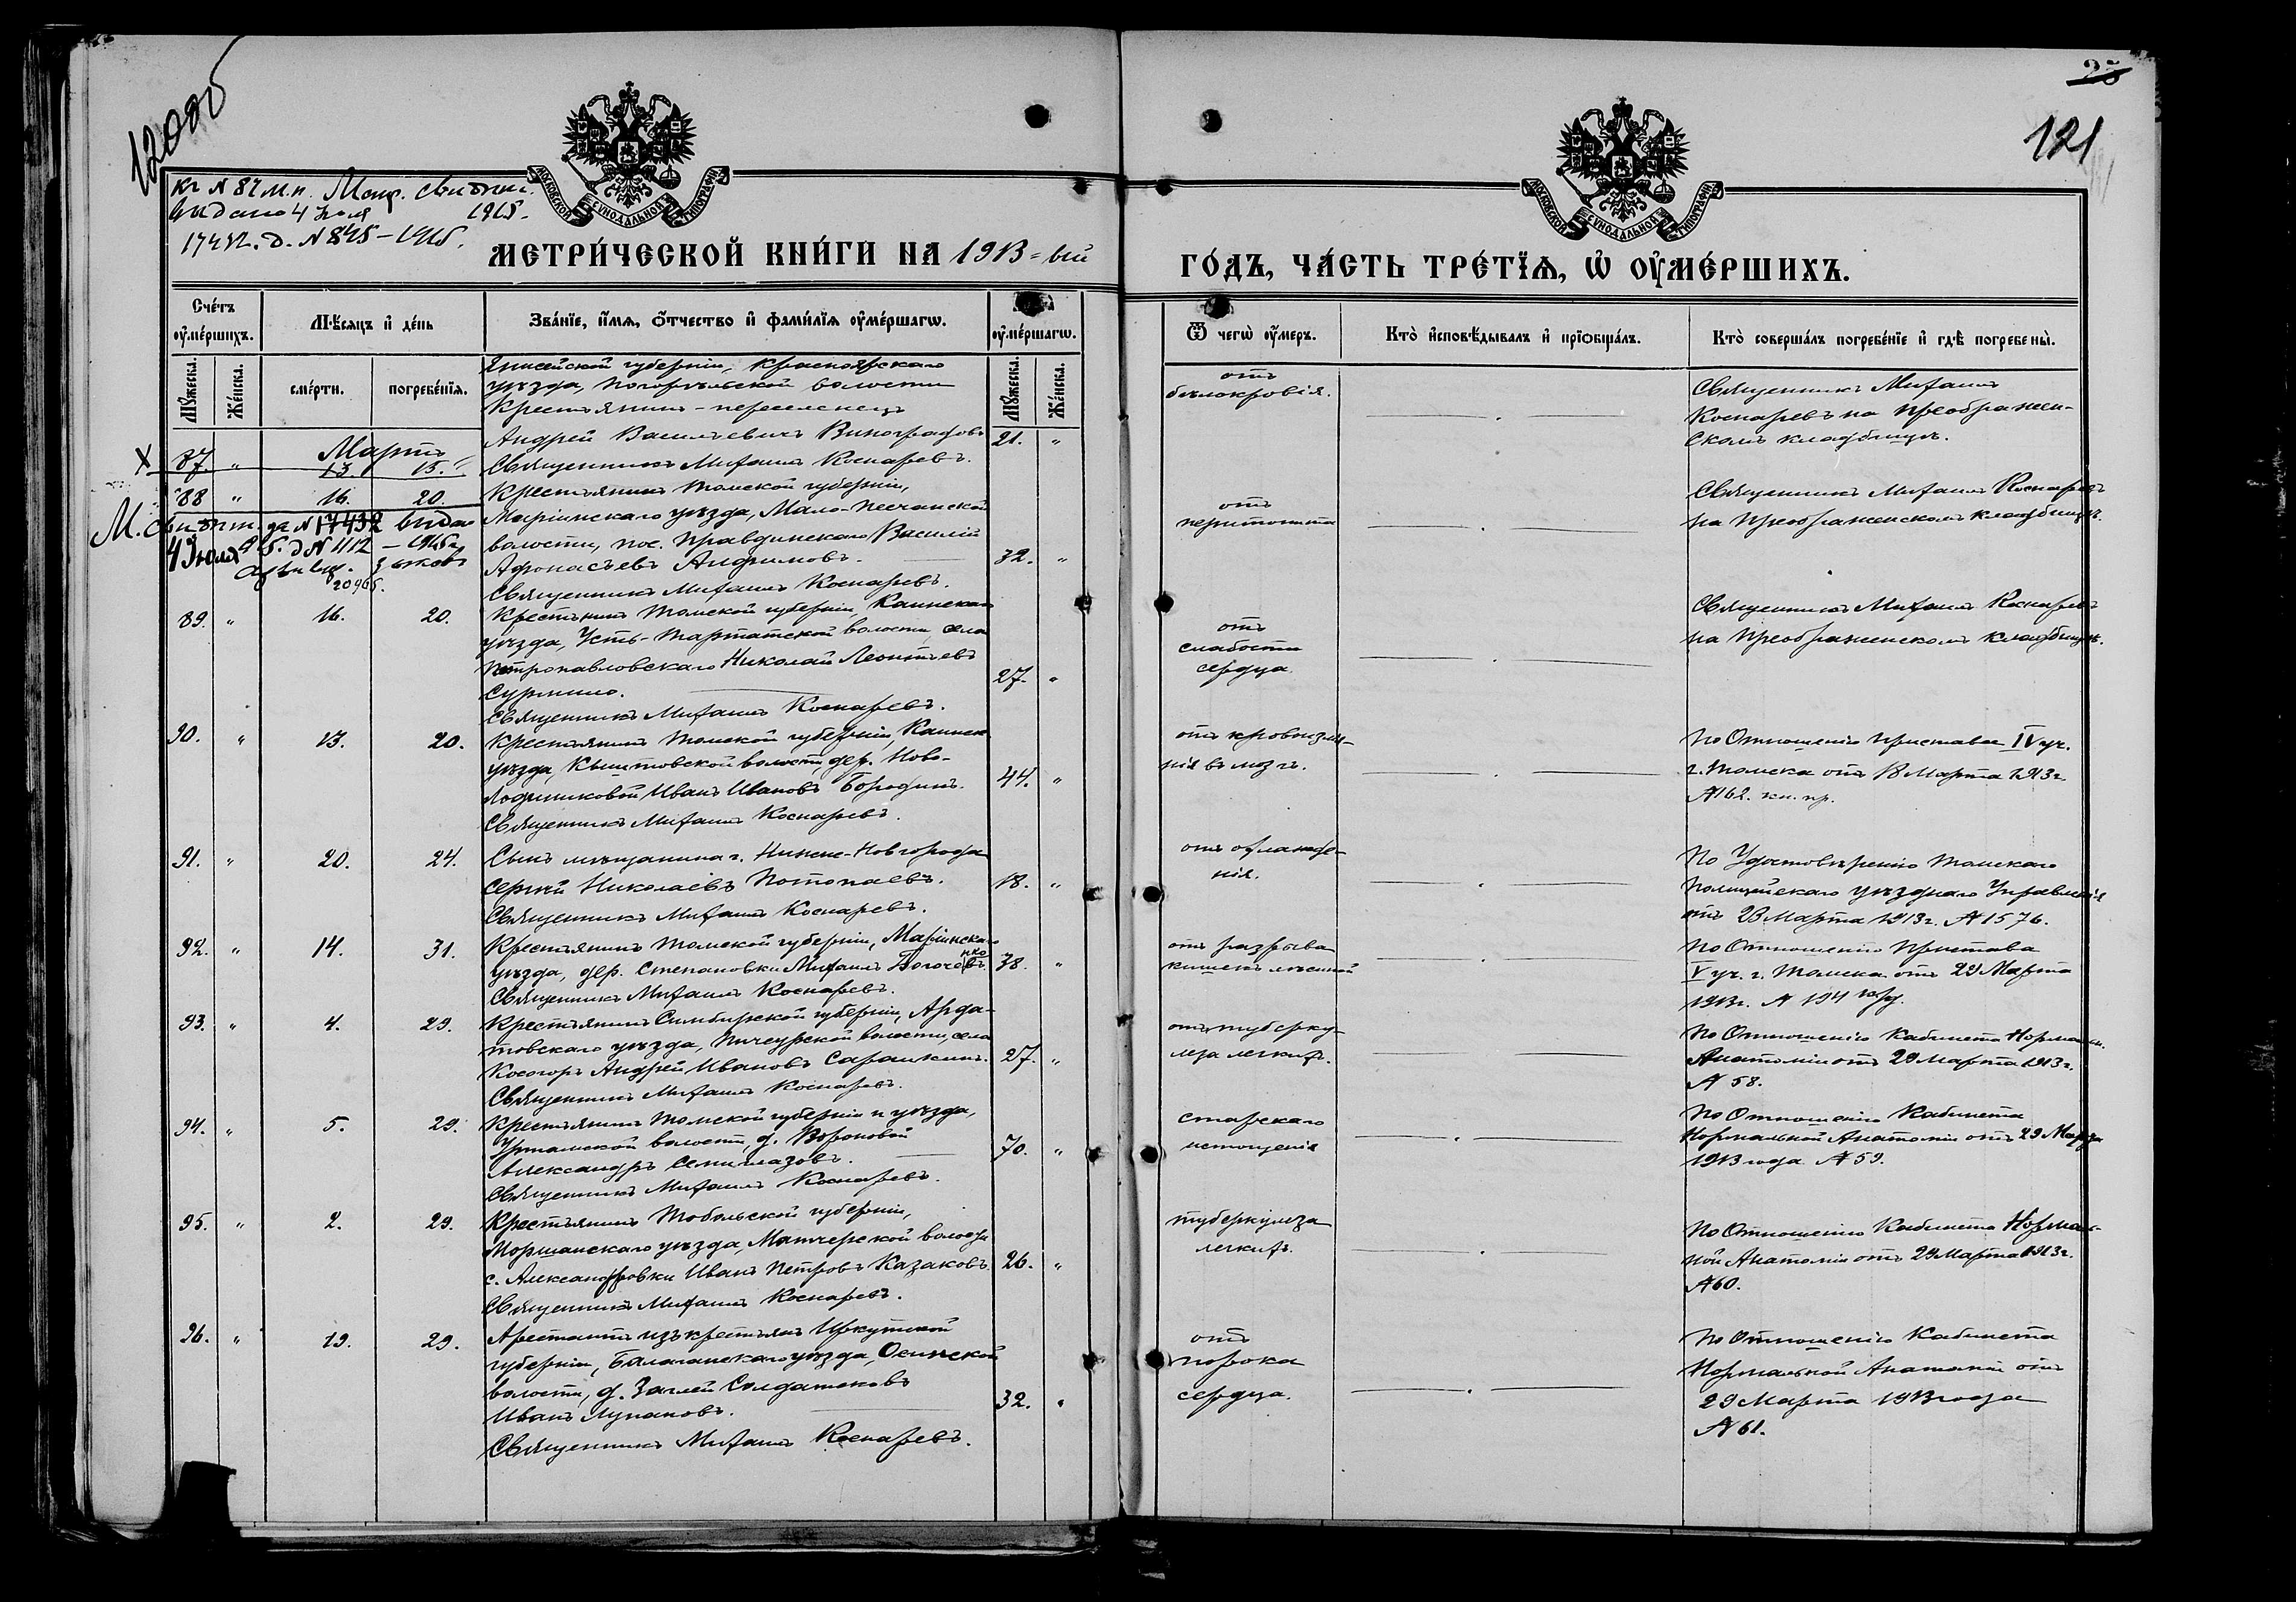 25
121
12000
Къ N 87 м.п. Метр. свидѣт.
выдано 4 Іюля 1915.
17432. д. N 845 – 1915.
МОСКОВСКОЙ СѴНОДАЛЬНОЙ ТИПОГРАФІИ
МОСКОВСКОЙ СѴНОДАЛЬНОЙ ТИПОГРАФІИ
МЕТРИ́ЧЕСКОЙ КНИ́ГИ НА 1913=ый
ГО́ДЪ, ЧА́СТЬ ТРЕ́ТІѦ, Ѡ҆ ОУ҆МЕ́РШИХЪ.
Сче́тъ оу҆ме́ршихъ.
Мѣ́сяцъ и҆ де́нь
Зва́нїе, и҆́мѧ, ѻ҆́тчество и҆ фами́лїѧ оу҆ме́ршагѡ.
оу҆ме́ршагѡ.
Ѿ чегѡ̀ оу҆́меръ.
Кто̀ и҆сповѣ́дывалъ и҆ прїѡбща́лъ.
Кто̀ соверша́лъ погребе́нїе и҆ гдѣ̀ погребены̀.
Мꙋ́жеска.
Же́нска.
сме́рти.
погребе́нїѧ.
Мꙋ́жеска.
Же́нска.
Енисейской губерніи, Красноярскаго
уѣзда, Погорѣльской волости
крестьянинъ-переселенецъ
Андрей Васильевичъ Виноградовъ 21. "
Мартъ
Х 87. " 13. 15.
Священникъ Михаилъ Коснаревъ.
отъ
бѣлокровія.
Священникъ Михаилъ
Коснаревъ на Преображен-
скомъ кладбищѣ.
88 " 16. 20. Крестьянинъ Томской губерніи,
Маріинскаго уѣзда, Мало-Песчанской
волости, пос. Правдинскаго Василій
Афонасьевъ Анфимовъ. 32. "
Священникъ Михаилъ Коснаревъ.
М. свидѣт. за N 17432 выдано
4 Іюля
д N 1112 – 1915
20965.
отъ
перитонита
Священникъ Михаилъ Коснаревъ
на Преображенскомъ кладбищѣ.
89. " 16. 20. Крестьянинъ Томской губерніи, Каинскаго
уѣзда, Усть-Тартатской волости, села
Петропавловскаго Николай Леонтьевъ
Сурмино. 27. "
Священникъ Михаилъ Коснаревъ.
отъ
слабости
сердца.
Священникъ Михаилъ Коснаревъ
на Преображенскомъ кладбищѣ.
90. " 13. 20. Крестьянинъ Томской губерніи, Каинск.
уѣзда, Кыштовской волости, дер. Ново-
Ложниковой Иванъ Ивановъ Бородинъ. 44. "
Священникъ Михаилъ Коснаревъ.
отъ кровоизлія-
нія въ мозгъ.
По Отношенію Пристава IV уч.
г. Томска отъ 18 Марта 1913 г.
N 162. кн. пр.
91. " 20. 24. Сынъ мѣщанина г. Нижне-Новгорода
Сергѣй Николаевъ Потопаевъ. 18. "
Священникъ Михаилъ Коснаревъ.
отъ охлажде-
нія.
По Удостовѣренію Томскаго
Полицейскаго уѣзднаго Управленія
отъ 23 Марта 1913 г. N 1576.
92. " 14. 31. Крестьянинъ Томской губерніи, Маріинскаго
уѣзда, дер. Степановки Михаилъ 38. "
Священникъ Михаилъ Коснаревъ.
отъ разрыва
кишекъ
По Отношенію Пристава
V уч. г. Томска отъ 29 Марта
1913 г. N 194
93. " 4. 29. Крестьянинъ Симбирской губерніи, Арда-
товскаго уѣзда, Пичеурской волости, села
Косогоръ Андрей Ивановъ Сараскинъ. 27. "
Священникъ Михаилъ Коснаревъ.
отъ туберку-
леза легкихъ.
По Отношенію Кабинета Нормальн.
Анатоміи отъ 29 Марта 1913 г.
N 58.
94. " 5. 29. Крестьянинъ Томской губерніи и уѣзда,
Уртамской волости, д. Вороновой
Александръ Семиглазовъ. 70. "
Священникъ Михаилъ Коснаревъ.
старскаго
истощенія
По Отношенію Кабинета
Нормальной Анатоміи отъ 29 Марта
1913 года N 59.
95. " 2. 29. Крестьянинъ Тобольской губерніи,
Моршанскаго уѣзда, волости
с. Александровки Иванъ Петровъ Казаковъ. 26. "
Священникъ Михаилъ Коснаревъ.
туберкулеза
легкихъ.
По Отношенію Кабинета Нормаль-
ной Анатоміи отъ 29 Марта 1913 г.
N 60.
96. " 19. 29. Арестантъ изъ крестьянъ Иркутской
губерніи, Балаганскаго уѣзда, Осинской
волости, д. Заглей Солдатоковъ
Иванъ Лупановъ. 32. "
Священникъ Михаилъ Коснаревъ.
отъ
порока
сердца.
По Отношенію Кабинета
Нормальной Анатоміи отъ
29 Марта 1913 года
N 61.